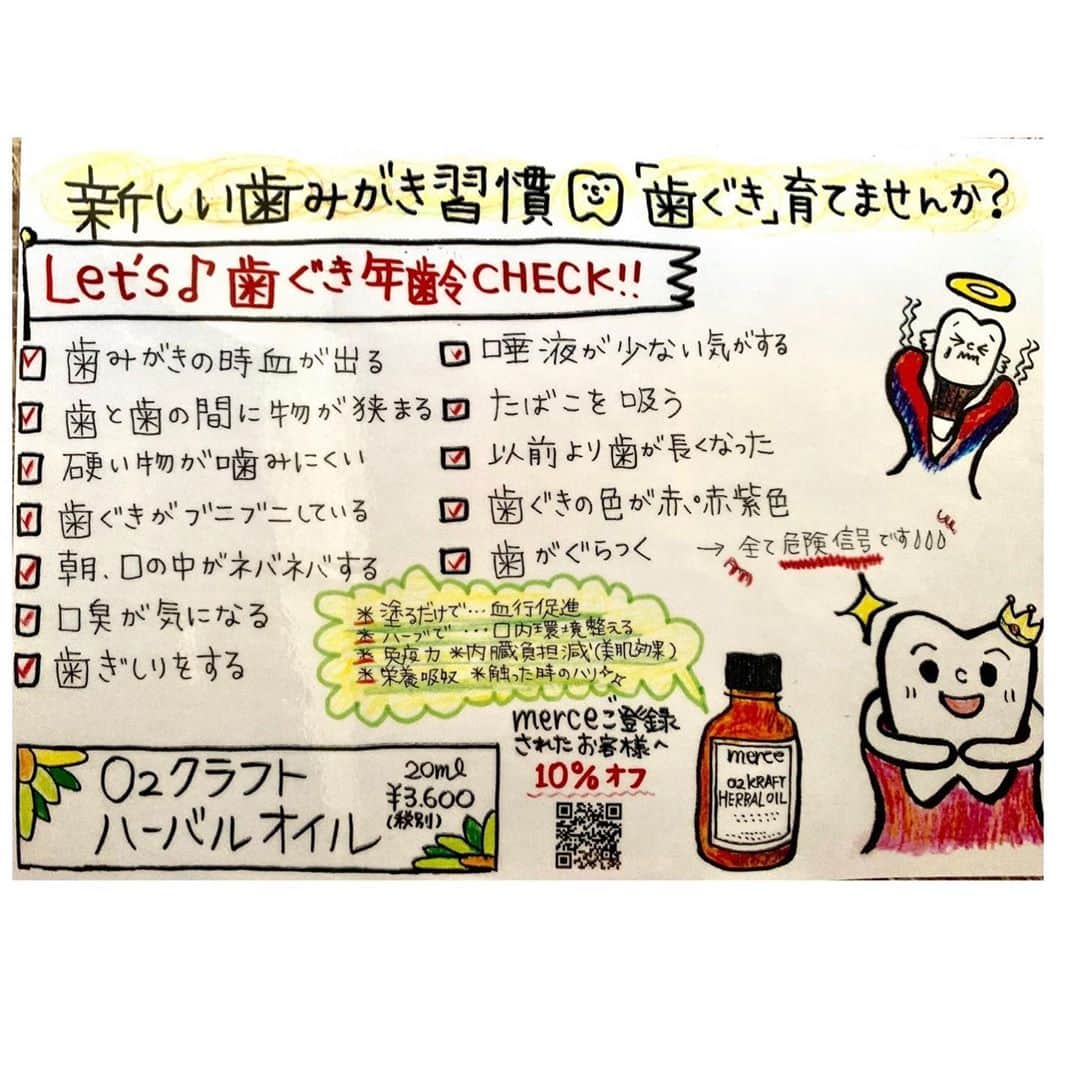 新しい歯みがき習慣「歯ぐき」育てませんか?
Let's♪歯ぐき年齢CHECK!!
歯みがきの時血が出る
歯と歯の間に物が狭まる
硬い物が噛みにくい
歯ぐきがブニブニしている
朝、口の中がネバネバする
口臭が気になる
歯ぎしりをする
唾液が少ない気がする
たばこを吸う
以前より歯が長くなった
歯ぐきの色が赤・赤紫色
歯がぐらつく
→全て危険信号です
*塗るだけで…血行促進
*ハーブで…口内環境整える
*免疫力 *内臓負担減(美肌効果)
*栄養吸収 *触った時のハリ
merceご登録
されたお客様へ
10%オフ
O2クラフト
ハーバルオイル
20ml
¥3.600
(税別)
merce
O2 KRAFT
HERBAL OIL